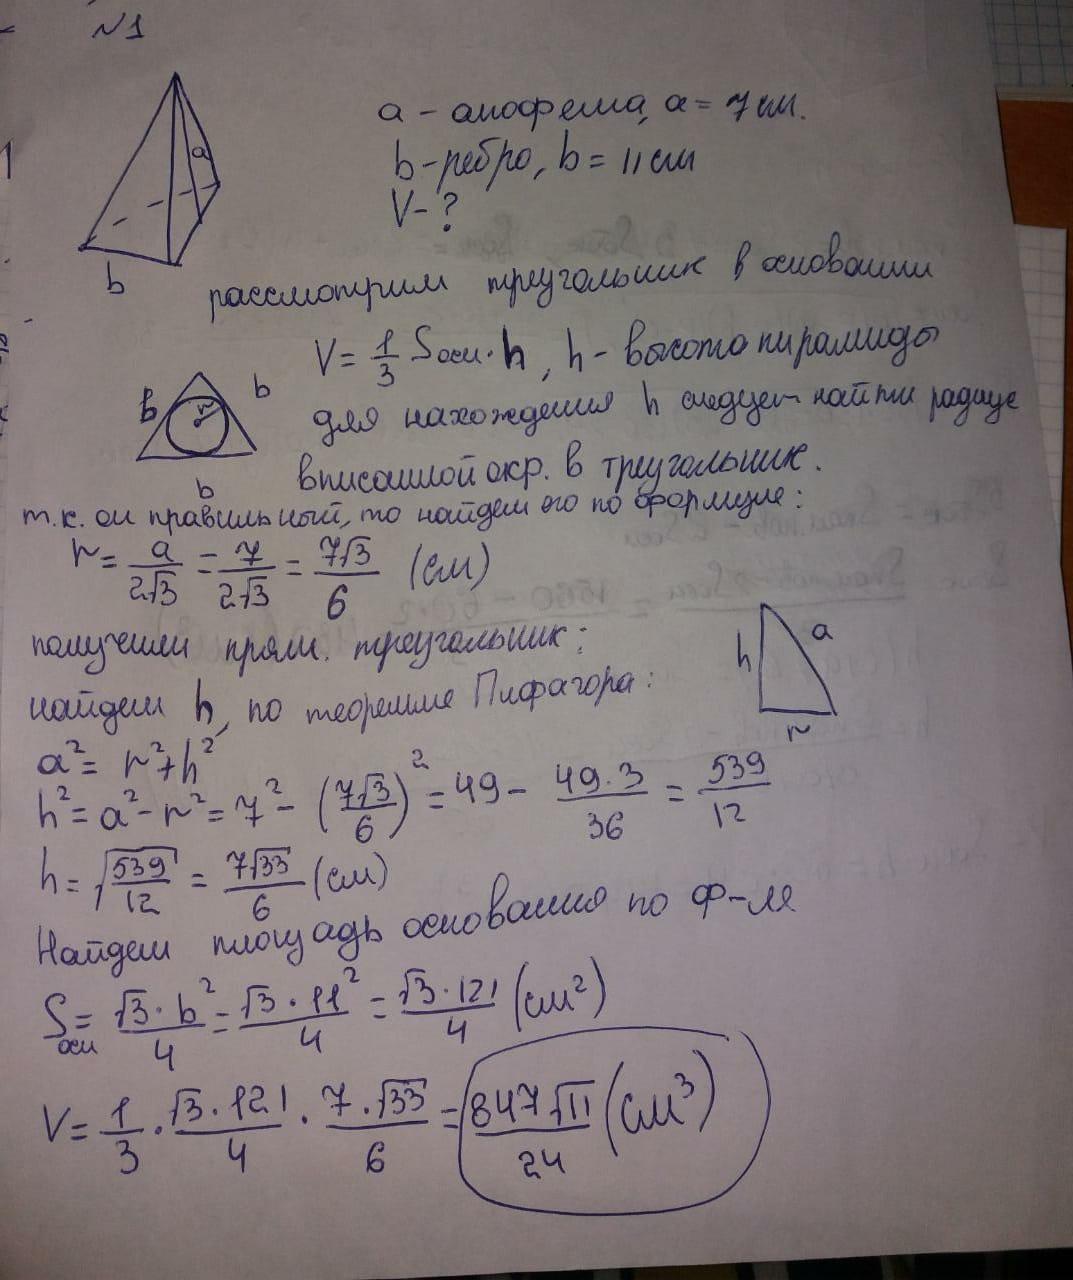 №1
a
b
a - апофема, a = 7 см.
b - ребро, b = 11 см
V - ?
рассмотрим треугольник в основании
V = 1/3 Sосн · h, h - высота пирамиды
b r b
b
для нахождения h следует найти радиус
вписанной окр. в треугольник.
т.к. он правильный, то найдем его по формуле:
r = a/2√3 = 7/2√3 = 7√3/6 (см)
получили прям. треугольник:
h a
r
найдем h, по теореме Пифагора:
a² = r² + h²
h² = a² - r² = 7² - (7√3/6)² = 49 - 49·3/36 = 539/12
h = √539/12 = 7√33/6 (см)
Найдем площадь основания по ф-ле
Sосн = √3·b²/4 = √3·11²/4 = √3·121/4 (см²)
V = 1/3 · √3·121/4 · 7·√33/6 = 847√11/24 (см³)